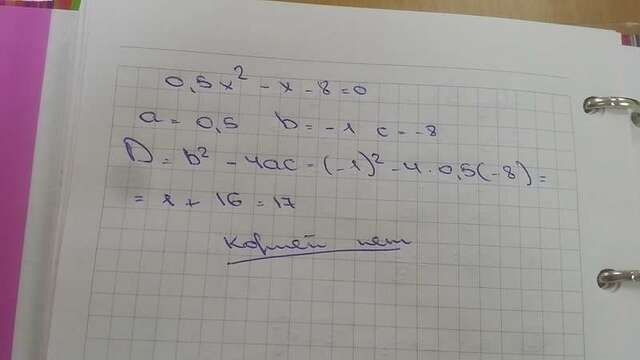 0,5x² - x - 8 = 0
a = 0,5 b = -1 c = -8
D = b² - 4ac = (-1)² - 4 · 0,5(-8) =
= 1 + 16 = 17
корней нет